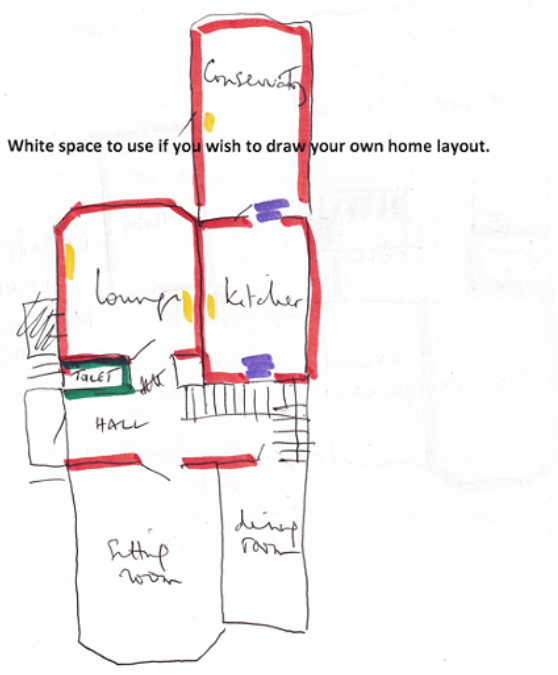 Conservatory
White space to use if you wish to draw your own home layout.
Lounge
Kitchen
TOILET
HALL
Sitting
room
dining
room